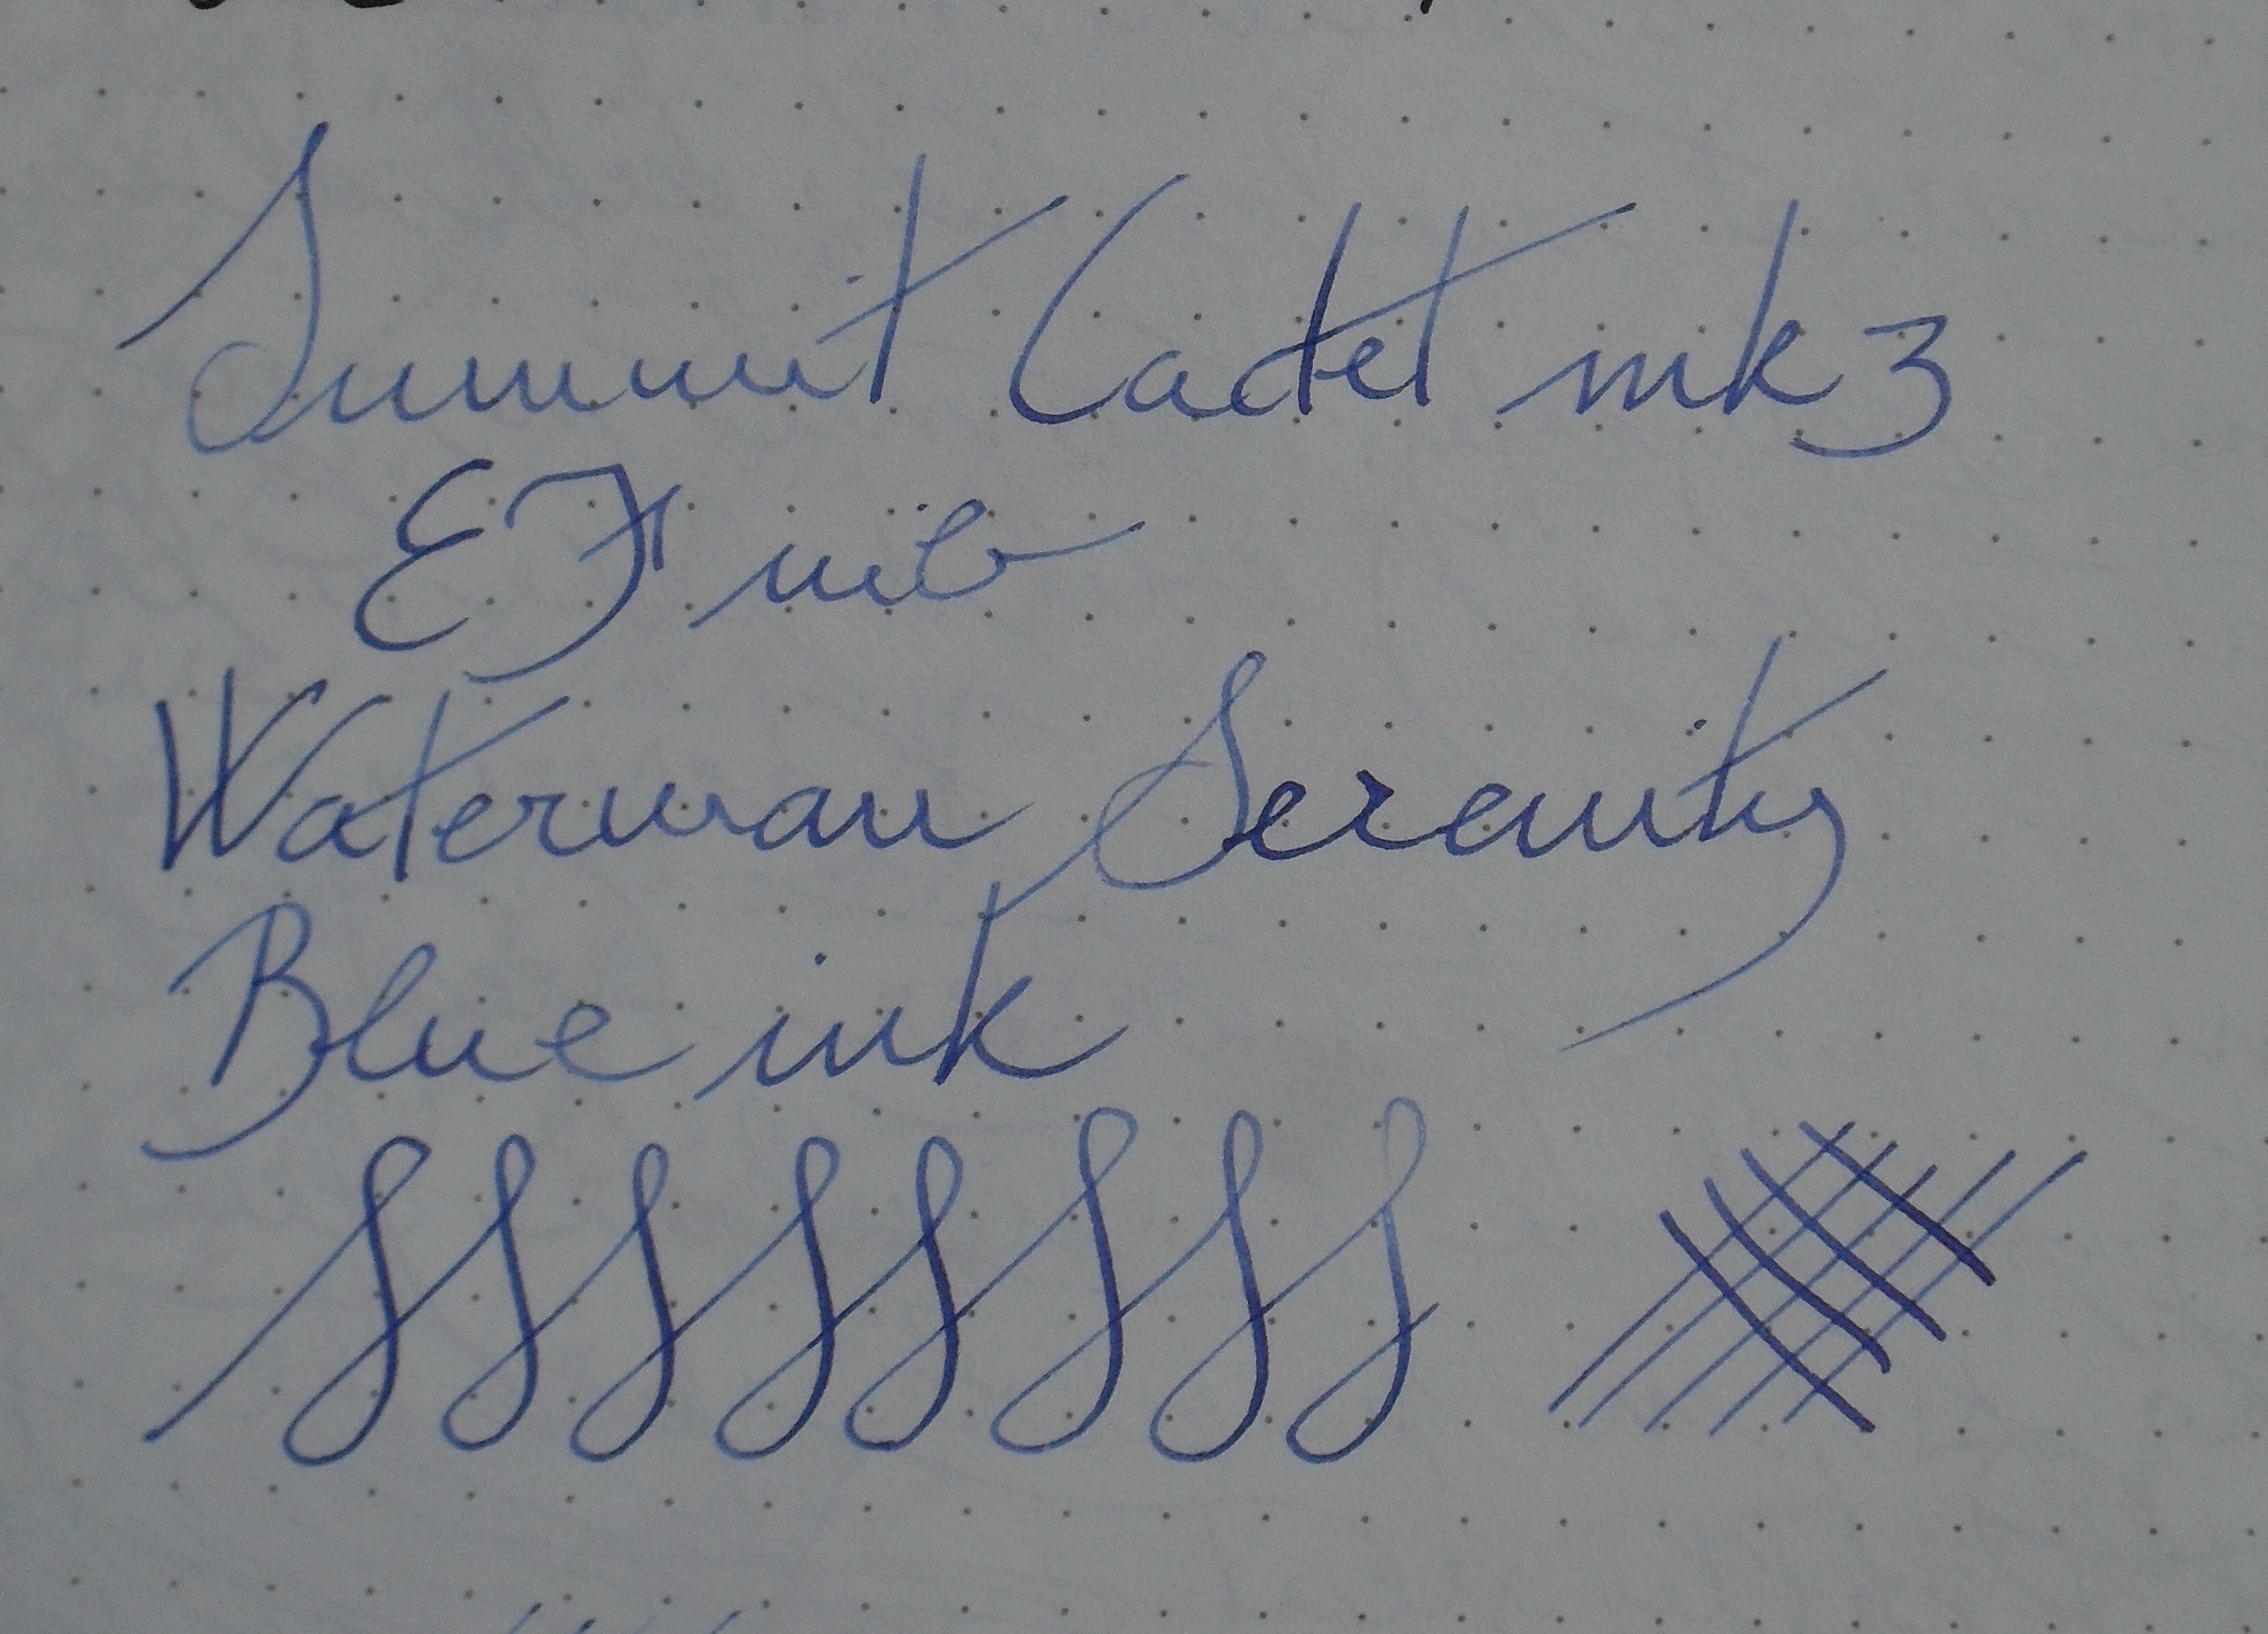 Summit Cadet mk 3
EF nib
Waterman Serenity
Blue ink